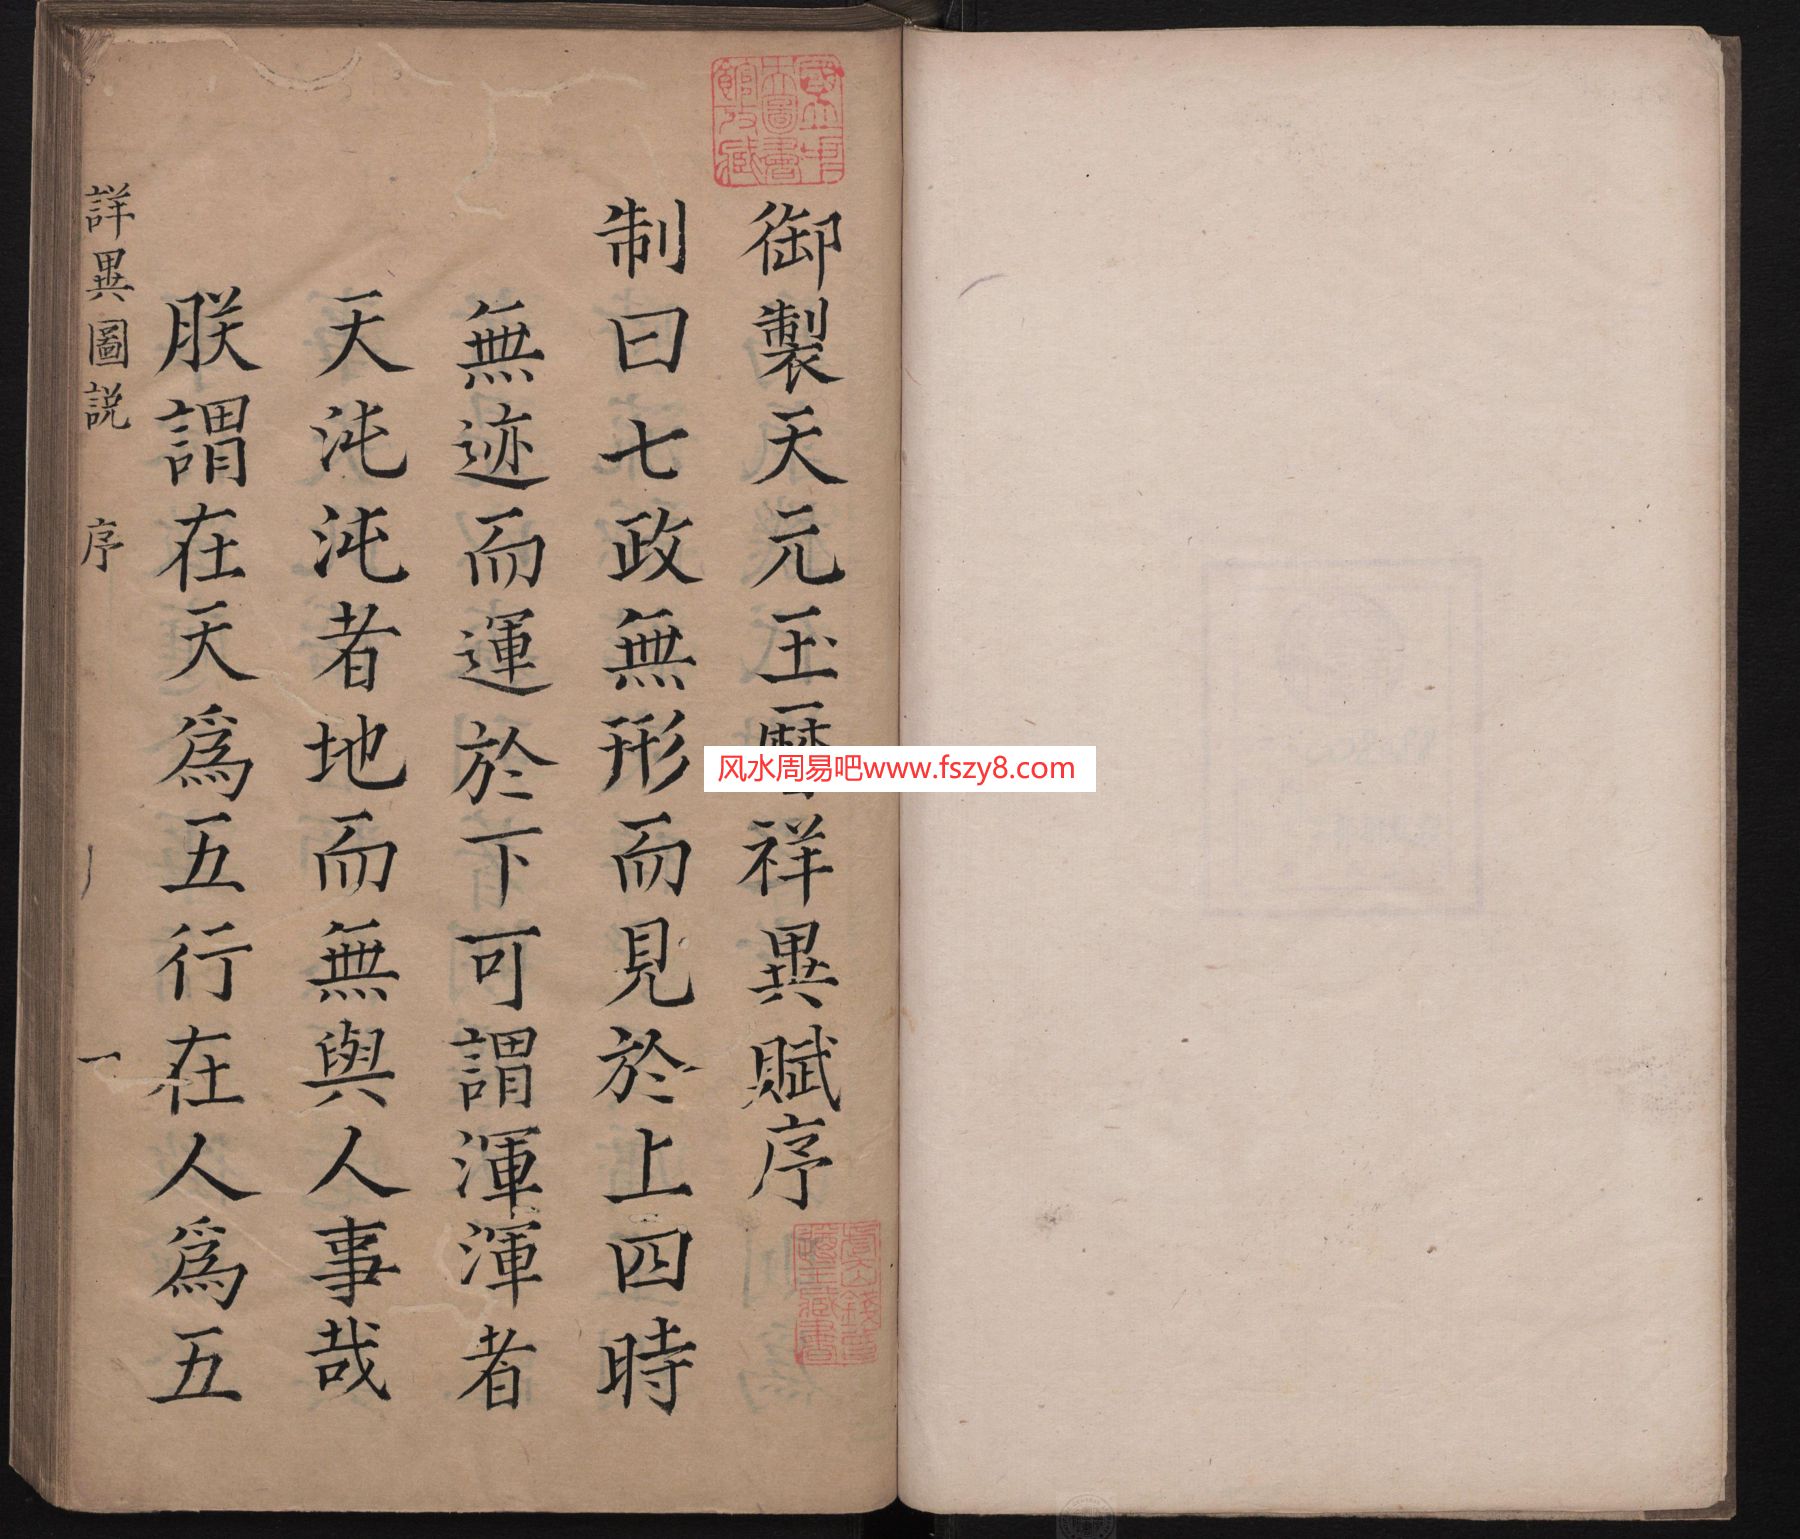 御製天元玉曆祥異賦序
制曰七政無形而見於上四時
無迹而運於下可謂渾渾者
天沌沌者地而無與人事哉
朕謂在天為五行在人為五
詳異圖説 序 一
國立中
央圖書
館收藏
风水周易吧www.fszy8.com